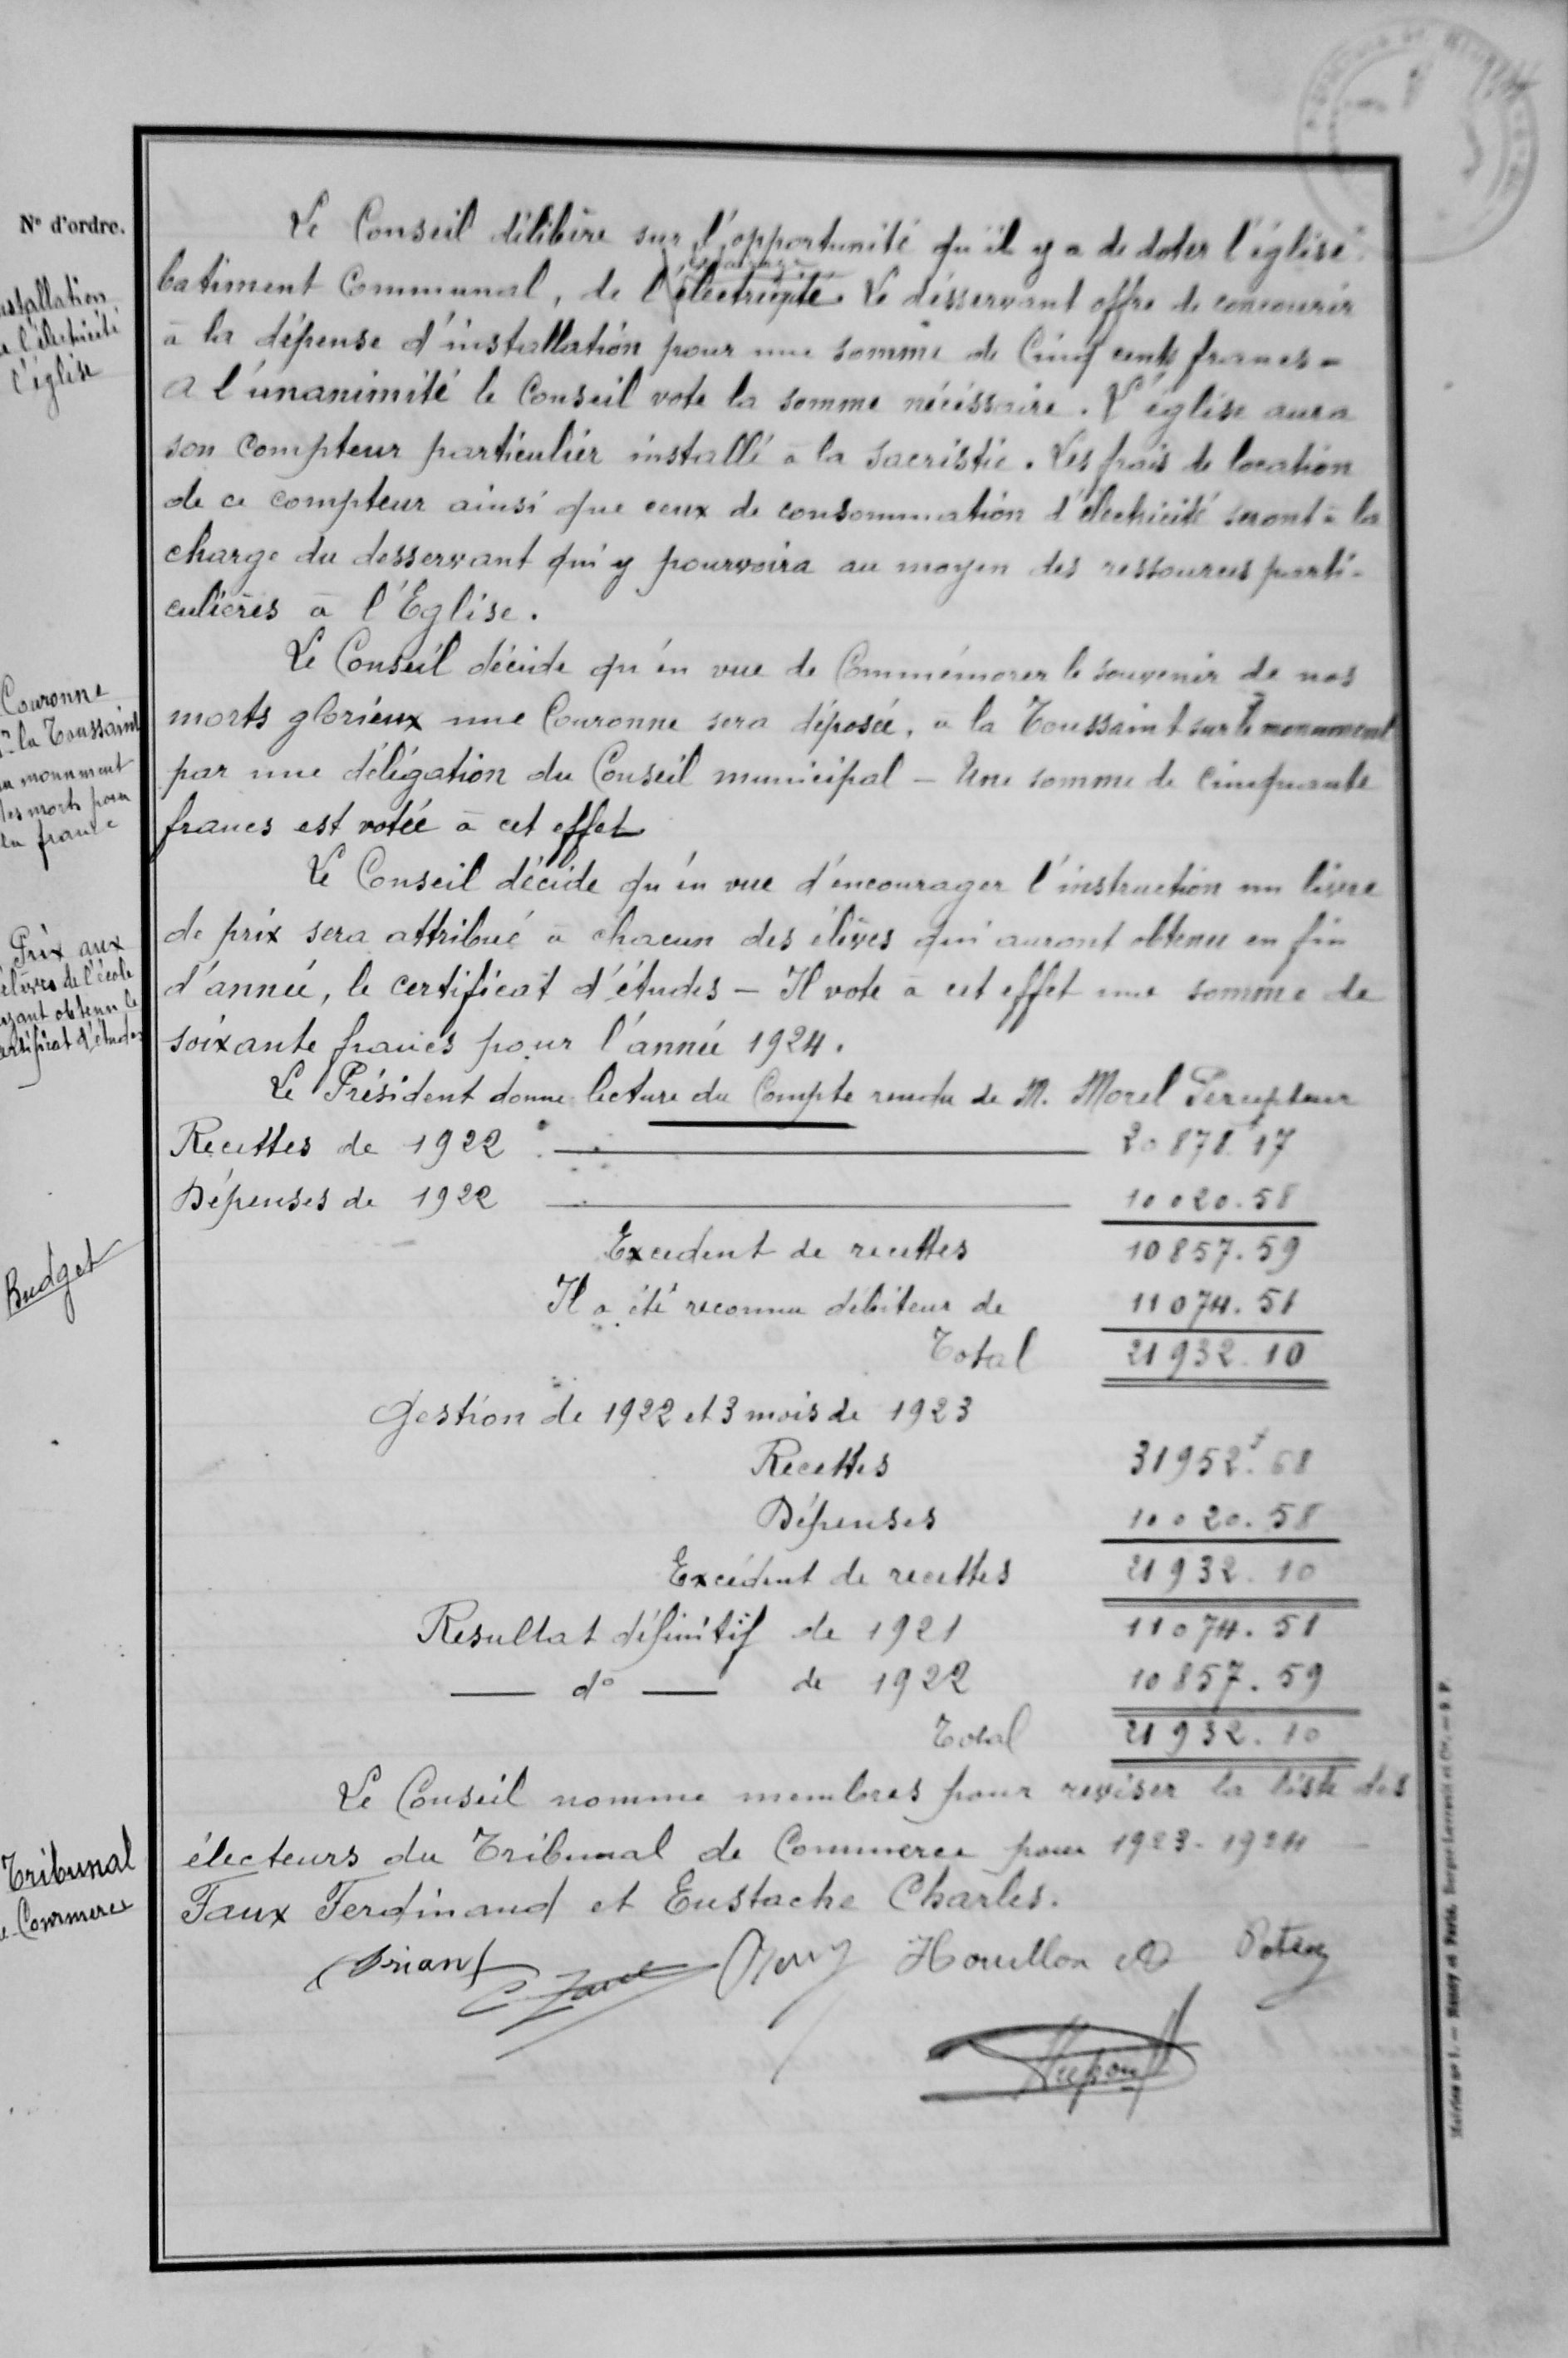 N° d'ordre.
Le Conseil délibère sur l'opportunité qu'il y a de doter l'église
batiment Communal, de l'éclairage électrique. Le désservant offre de concourir
à la dépense d'installation pour une somme de Cinq cents francs -
A l'unanimité le Conseil vote la somme nécéssaire. L'église aura
son Compteur particulier installé à la sacristie. Les frais de location
de ce compteur ainsi que ceux de consommation d'électricité seront à la
charge du desservant qui y pourvoira au moyen des ressources parti-
culières à l'Eglise.
Le Conseil décide qu'en vue de Commémorer le souvenir de nos
morts glorieux une Couronne sera déposée, à la Toussaint sur le monument
par une délégation du Conseil municipal - Une somme de cinquante
francs est votée à cet effet
Le Conseil décide qu'en vue d'encourager l'instruction un livre
de prix sera attribué à chacun des élèves qui auront obtenu en fin
d'année, le certificat d'études - Il vote à cet effet une somme de
soixante francs pour l'année 1924.
Le Président donne lecture du Compte rendu de M. Morel Percepteur
Recettes de 1922 20878.17
Dépenses de 1922 10020.58
Excedent de recettes 10857.59
Il a été reconnu débiteur de 11074.51
Total 21932.10
Gestion de 1922 et 3 mois de 1923
Recettes 31952f.68
Dépenses 10020.58
Excédent de recettes 21932.10
Resultat définitif de 1921 11074.51
— d° — de 1922 10857.59
Total 21932.10
Le Conseil nomme membres pour reviser la liste des
électeurs du Tribunal de Commerce pour 1923-1924 -
Faux Ferdinand et Eustache Charles.
Briant Houillon
Dupont
nstallation
e l'électricité
l'église
Couronne
la Toussaint
au monument
des morts pour
la france
Prix aux
élèves de l'école
ayant obtenu le
ertificat d'études
Budget
Tribunal
e Commerce
Nancy et Paris, Berger-Levrault et Cie.